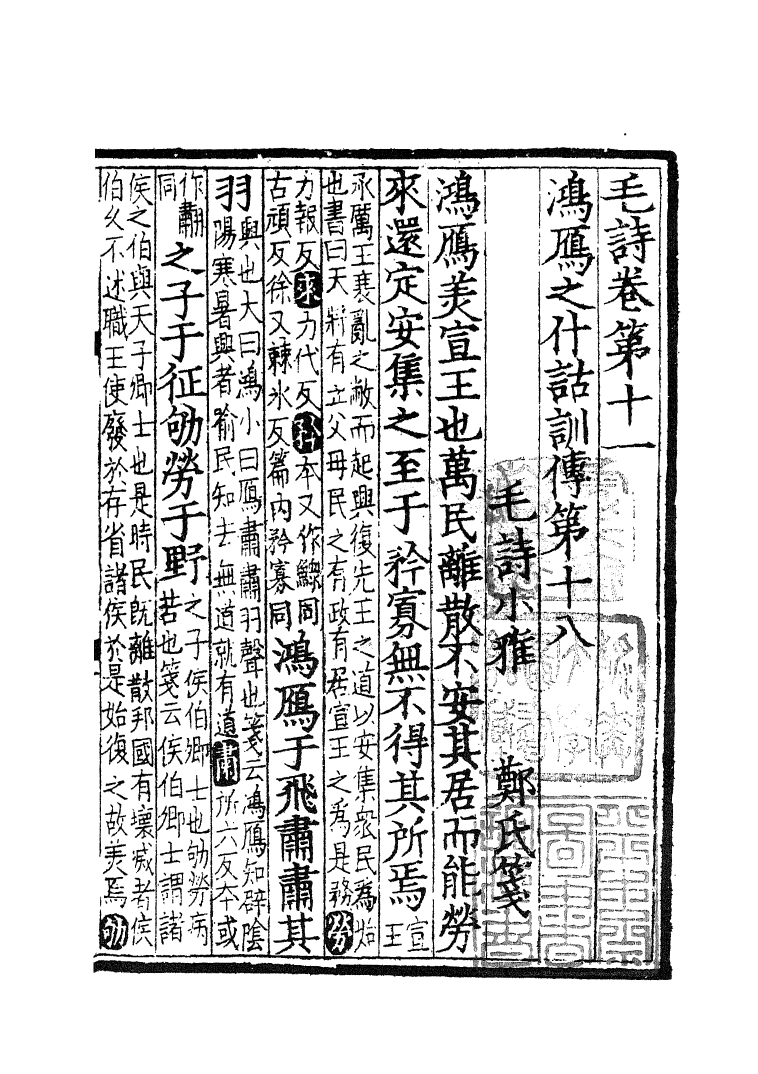 毛詩卷第十一
鴻鴈之什詁訓傳第十八
毛詩小雅 鄭氏箋
鴻鴈美宣王也萬民離散不安其居而能勞
來還定安集之至于矜寡無不得其所焉宣王
承厲王衰亂之敝而起興復先王之道以安集衆民為始
也書曰天將有立父母民之有政有居宣王之為是務勞
力報反來力代反矜本又作鰥同
古頑反徐又棘冰反篇內矜寡同鴻鴈于飛肅肅其
羽興也大曰鴻小曰鴈肅肅羽聲也箋云鴻鴈知辟陰
陽寒暑興者喻民知去無道就有道肅所六反本或
作䎘同之子于征劬勞于野之子侯伯卿士也劬勞病
苦也箋云侯伯卿士謂諸
侯之伯與天子卿士也是時民既離散邦國有壞滅者侯
伯久不述職王使廢於存省諸侯於是始復之故美焉劬